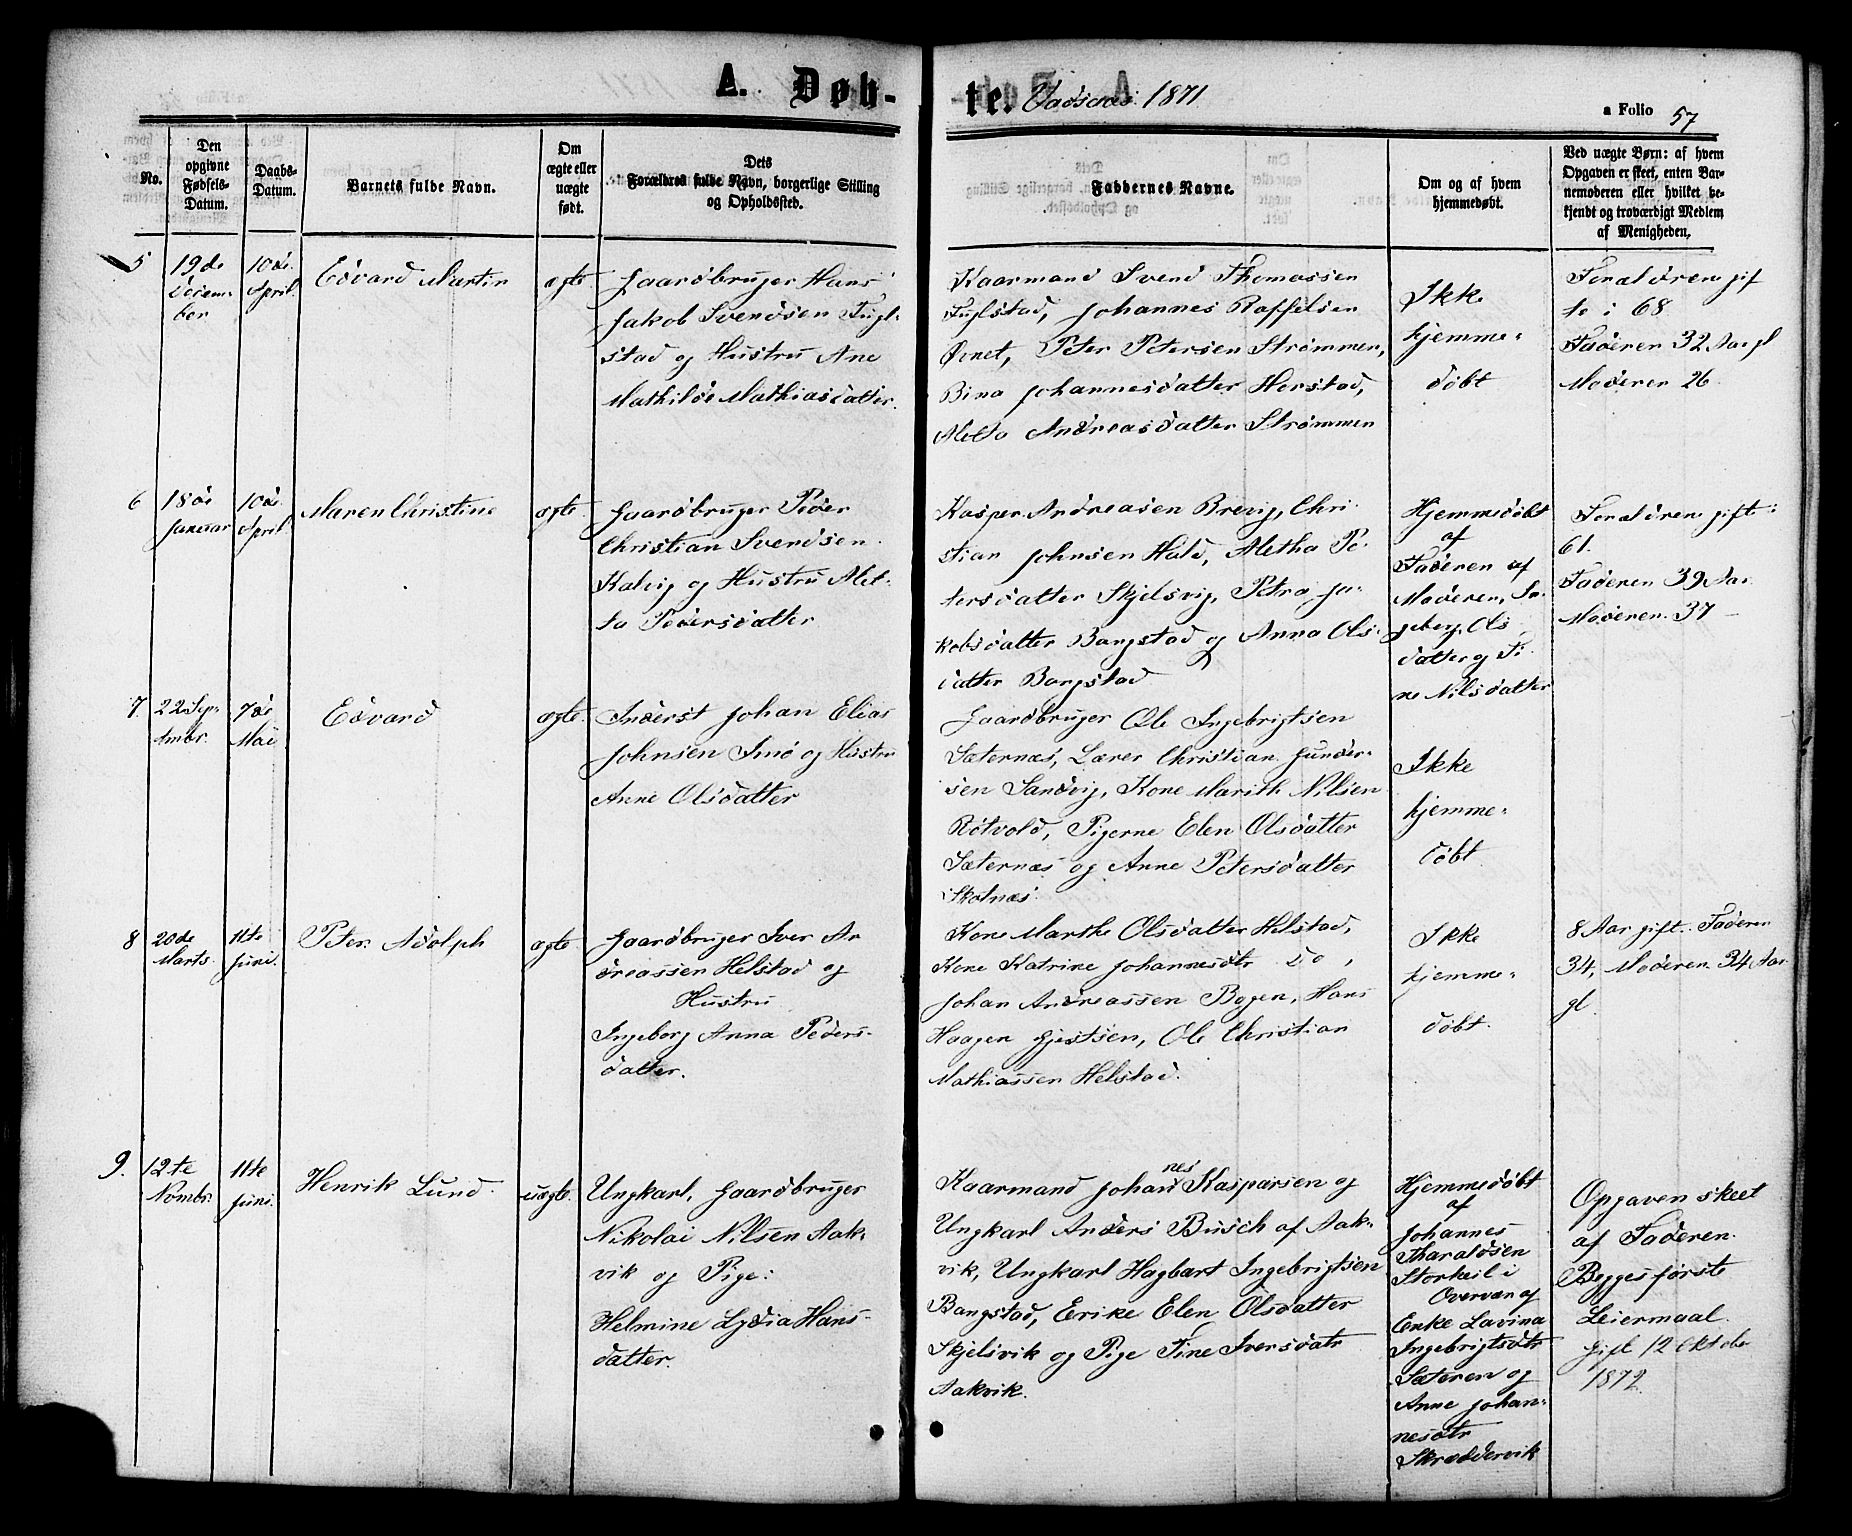 A. Døb-
te. Vadsnæs 1871
a Folio 57
No.
Den
opgivne
Fødsels-
Datum.
Daabs-
Datum.
Barnets fulde Navn.
Om
ægte eller
uægte
født.
Dets
Forældres fulde Navn, borgerlige Stilling
og Opholdssted.
Faddernes Navne.
Om og af hvem
hjemmedøbt.
Ved uægte Børn: af hvem
Opgaven er skeet, enten Bar-
nemoderen eller hvilket be-
kjendt og troværdigt Medlem
af Menigheden.
5
19de
Decem-
ber
10de
April
Edvard Martin
ægte
Gaardbruger Hans
Jakob Svendsen Fugl-
stad og Hustru Ane
Mathilde Mathiasdatter.
Kaarmand Svend Thomassen
Fuglstad, Johannes Raffelsen
Ørnet, Peter Petersen Strømmen,
Bina Johannesdatter Horstad,
Aletta Andreasdatter Strømmen
Ikke
hjemme-
døbt
Forældrene gif
te i 68
Faderen 32 Aar gl
Moderen 26
6
18de
Januar
10de
April
Maren Christine
ægte
Gaardbruger Peder
Christian Svendsen
Kalvig og Hustru Alet-
ta Pedersdatter
Kasper Andreasen Brevig, Chri-
stian Johnsen Hald, Aletha Pe-
tersdatter Skjelsvig, Petra Ja-
kobsdatter Bangstad og Anna Ols-
datter Bangstad
Hjemmedøbt
af
Faderen af
Moderen, In-
geberg Ols
datter og Ti-
ne Nilsdatter
Forældrene gift:
61.
Faderen 39 Aar
Moderen 37 –
7
22 Sep-
tembr.
7de
Mai
Edvard
ægte
Inderst Johan Elias
Johnsen Smø og Hustru
Anne Olsdatter
Gaardbruger Ole Ingebrigtsen
Sæternæs, Lærer Christian Gunder-
sen Sandvig, Kone Marith Nilsen
Røtvold, Pigerne Elen Olsdatter
Sæternæs og Anne Petersdatter
Skotnæs
Ikke
hjemme-
døbt
8
20de
Marts
11te
Juni
Peter Adolph
ægte
Gaardbruger Iver An
dreassen Helstad og
Hustru
Ingeborg Anna Peders-
datter.
Kone Marthe Olsdatter Helstad,
Kone Katrine Johannesdtr Do,
Johan Andreassen Bogen, Hans
Haagen Gjestsen, Ole Christian
Mathiassen Helstad.
Ikke
hjemme-
døbt.
8 Aar gift. Faderen
34, Moderen 34 Aar
gl.
9.
12te
Novmbr.
11te
Juni
Henrik Lund
uægte
Ungkarl, Gaardbruger
Nikolai Nilsen Aak-
vik og Pige:
Helmine Lydia Hans-
datter.
Kaarmand Johannes Kaspersen og
Ungkarl Anders Busch af Aak-
vik, Ungkarl Hagbart Ingebrigtsen
Bangstad, Erike Elen Olsdatter
Skjelsvik og Pige Tine Iversdatr
Aakvik.
Hjemmedøbt
af
Johannes
Tharaldsen
Storheil i
Overvær af
Enke Lavina
Ingebrigtsdtr
Sæteren og
Anne Johan-
nesdtr
Skræddervik
Opgaven skeet
af Faderen.
Begges første
Leiermaal.
Gift 12 Oktober
1872